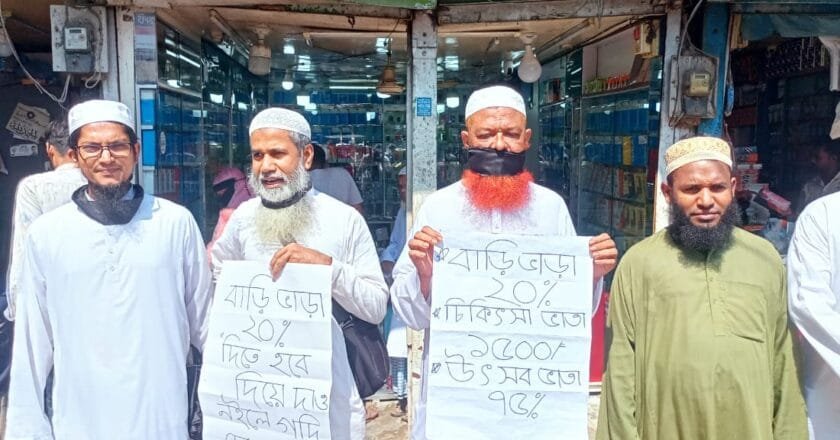 বাড়ি ভাড়া
২০%
দিতে হবে
দিয়ে দাও
নইলে গদি
বাড়ি ভাড়া
২০%
চিকিৎসা ভাতা
১৫০০/-
উৎসব ভাতা
৭৫%